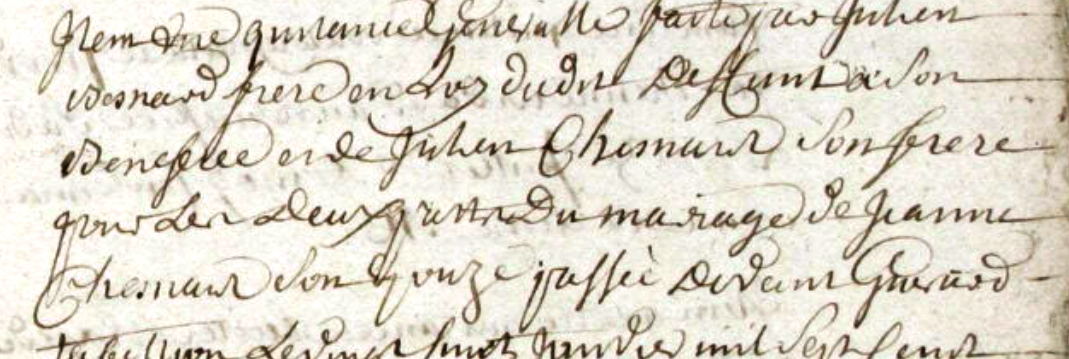 Item une quitance generalle faite par Julien
Besnard frere en Loy dudit deffunt a son
Benefice et de Julien Chesnard son frere
pour les deux parts du mariage de Jeanne
Chesnard son epouze passée devant Guerard
tabellion le vingt huit Janvier mil sept cent